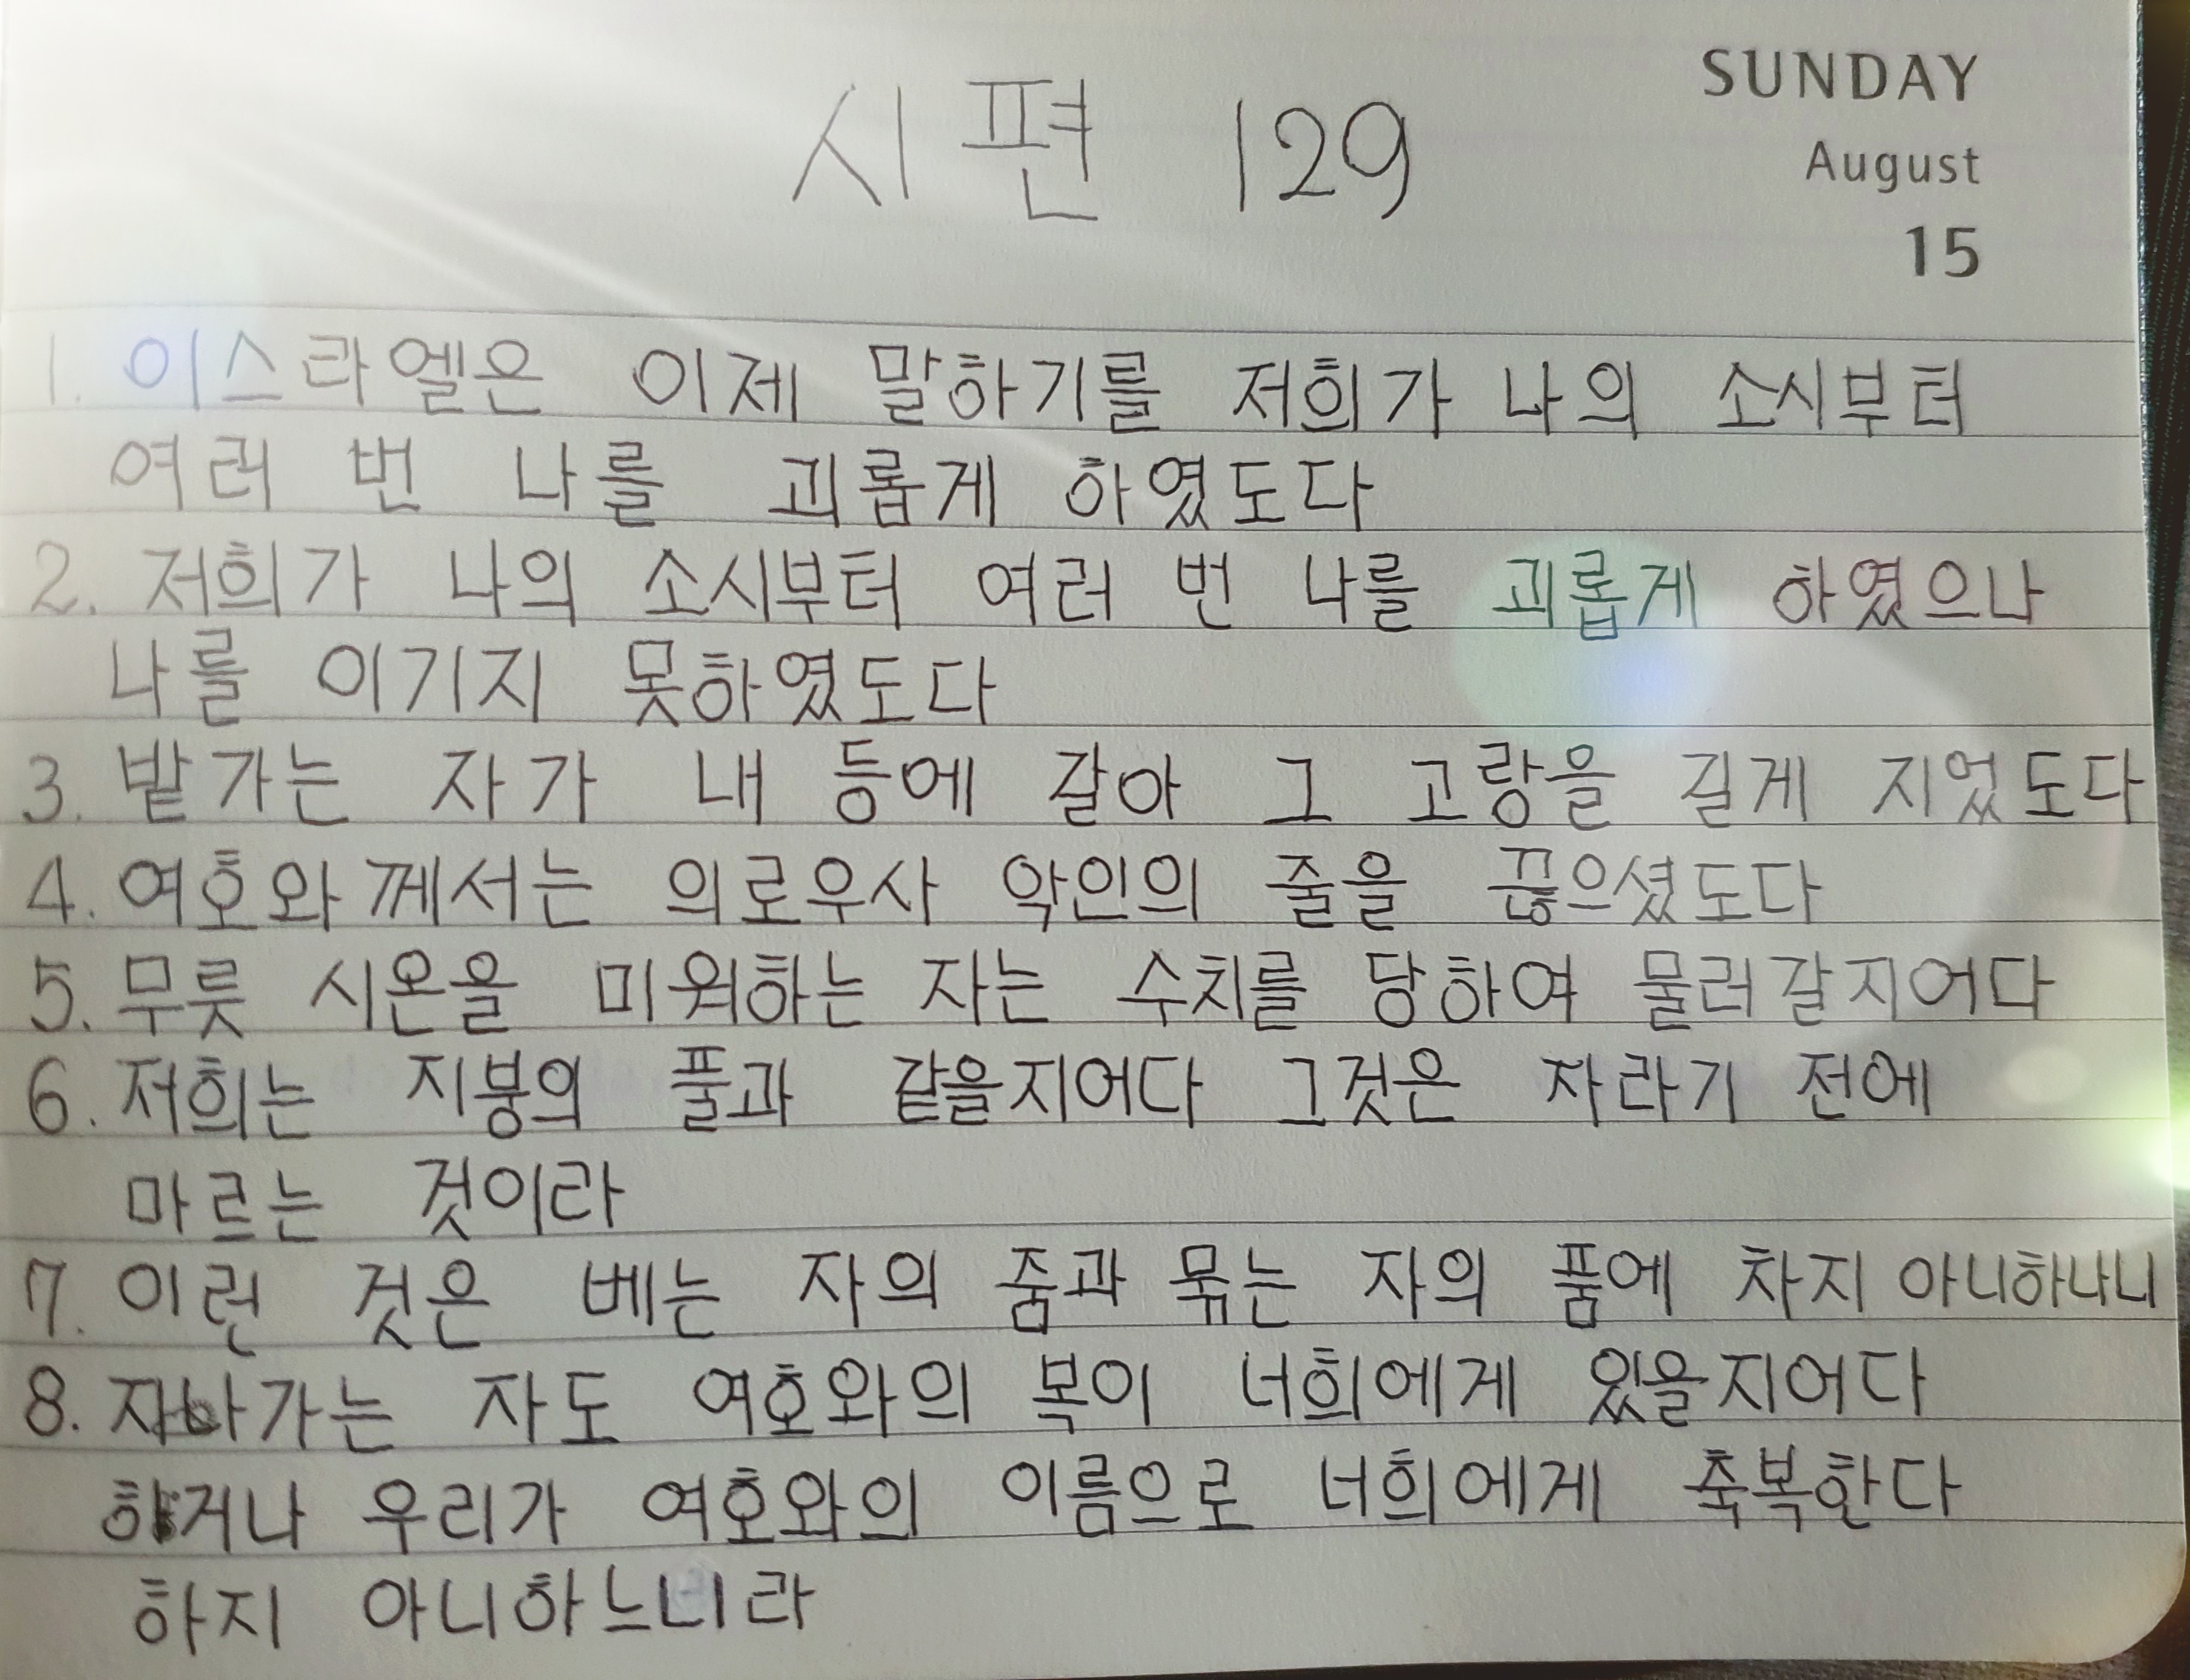 시편 129
SUNDAY
August
15
1. 이스라엘은 이제 말하기를 저희가 나의 소시부터
여러 번 나를 괴롭게 하였도다
2. 저희가 나의 소시부터 여러 번 나를 괴롭게 하였으나
나를 이기지 못하였도다
3. 밭가는 자가 내 등에 갈아 그 고랑을 길게 지었도다
4. 여호와께서는 의로우사 악인의 줄을 끊으셨도다
5. 무릇 시온을 미워하는 자는 수치를 당하여 물러갈지어다
6. 저희는 지붕의 풀과 같을지어다 그것은 자라기 전에
마르는 것이라
7. 이런 것은 베는 자의 줌과 묶는 자의 품에 차지 아니하나니
8. 지나가는 자도 여호와의 복이 너희에게 있을지어다
하거나 우리가 여호와의 이름으로 너희에게 축복한다
하지 아니하느니라